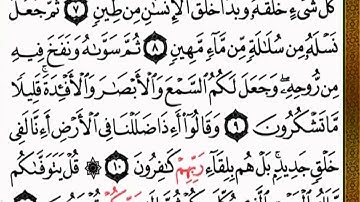 كُلَّ شَيْءٍ خَلَقَهُۥ وَبَدَأَ خَلْقَ ٱلْإِنسَٰنِ مِن طِينٍ ٧ ثُمَّ جَعَلَ
نَسْلَهُۥ مِن سُلَٰلَةٍ مِّن مَّآءٍ مَّهِينٍ ٨ ثُمَّ سَوَّىٰهُ وَنَفَخَ فِيهِ
مِن رُّوحِهِۦ وَجَعَلَ لَكُمُ ٱلسَّمْعَ وَٱلْأَبْصَٰرَ وَٱلْأَفْـِٔدَةَ قَلِيلًا
مَّا تَشْكُرُونَ ٩ وَقَالُوٓا۟ أَءِذَا ضَلَلْنَا فِى ٱلْأَرْضِ أَءِنَّا لَفِى
خَلْقٍ جَدِيدٍۭ بَلْ هُم بِلِقَآءِ رَبِّهِمْ كَٰفِرُونَ ١٠ ۞ قُلْ يَتَوَفَّىٰكُم